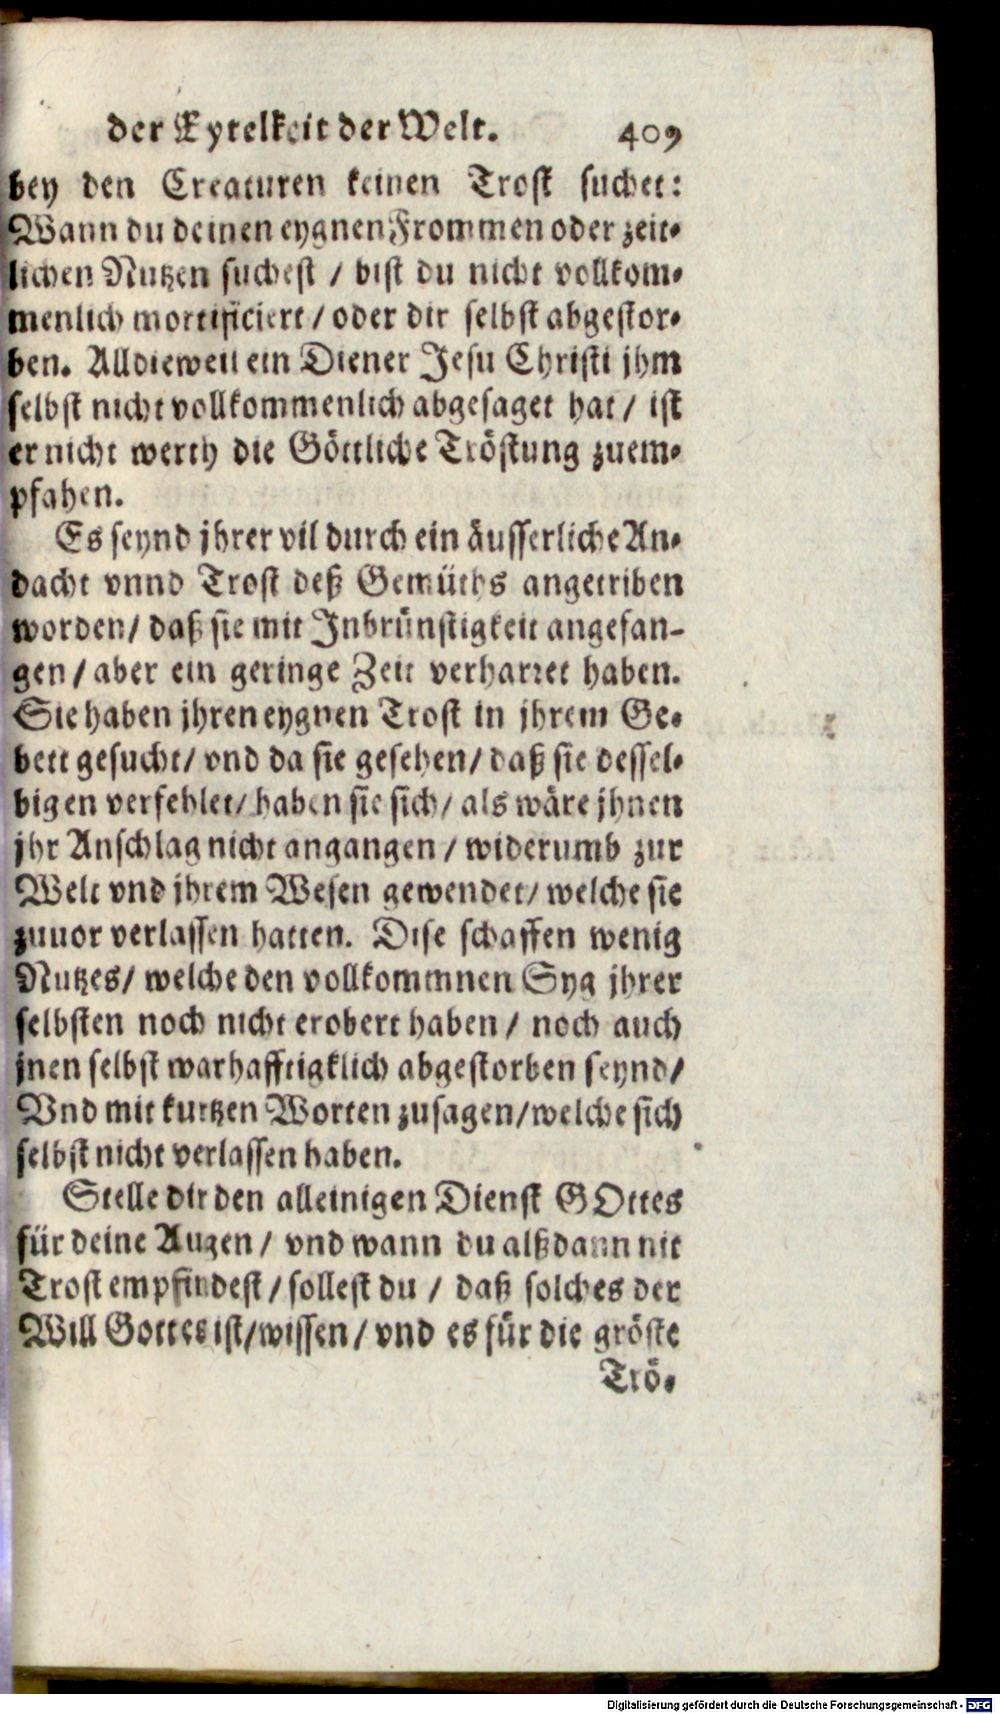 der Eytelkeit der Welt. 409
bey den Creaturen keinen Trost suchet:
Wann du deinen eygnen Frommen oder zeit-
lichen Nutzen suchest / bist du nicht vollkom-
menlich mortificiert / oder dir selbst abgestor-
ben. Alldieweil ein Diener Jesu Christi jhm
selbst nicht vollkommenlich abgesaget hat / ist
er nicht werth die Göttliche Tröstung zuem-
pfahen.
Es seynd jhrer vil durch ein äusserliche An-
dacht vnnd Trost deß Gemüths angetriben
worden / daß sie mit Inbrünstigkeit angefan-
gen / aber ein geringe Zeit verharret haben.
Sie haben jhren eygnen Trost in jhrem Ge-
bett gesucht / vnd da sie gesehen / daß sie dessel-
bigen verfehlet / haben sie sich / als wäre jhnen
jhr Anschlag nicht angangen / widerumb zur
Welt vnd jhrem Wesen gewendet / welche sie
zuuor verlassen hatten. Dise schaffen wenig
Nutzes / welche den vollkommnen Syg jhrer
selbsten noch nicht erobert haben / noch auch
jnen selbst warhafftigklich abgestorben seynd /
Vnd mit kurtzen Worten zusagen / welche sich
selbst nicht verlassen haben.
Stelle dir den alleinigen Dienst GOttes
für deine Augen / vnd wann du alßdann nit
Trost empfindest / sollest du / daß solches der
Will Gottes ist / wissen / vnd es für die gröste
Trö-
Digitalisierung gefördert durch die Deutsche Forschungsgemeinschaft - DFG